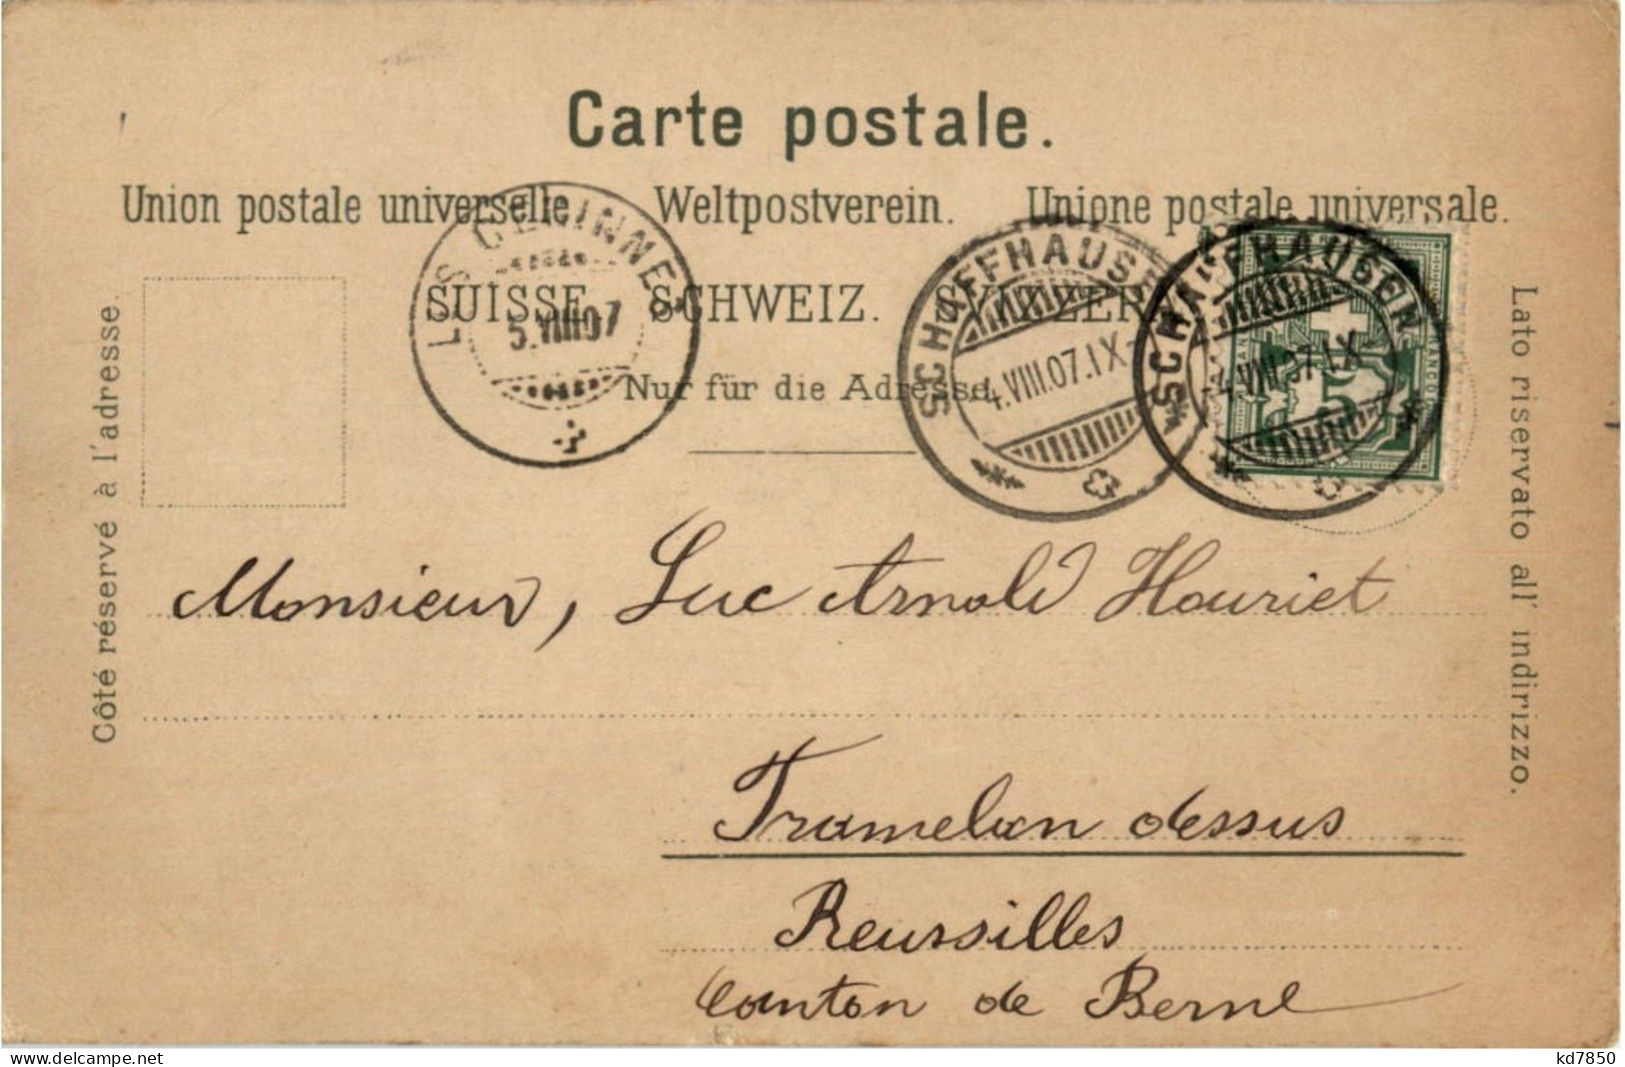 Carte postale.
Union postale universelle. Weltpostverein. Unione postale universale.
SUISSE. SCHWEIZ. SVIZZERA.
Nur für die Adresse.
Côté réservé à l'adresse.
Lato riservato all' indirizzo.
5.VIII.07
SCHAFFHAUSEN
4.VIII.07.IX
SCHAFFHAUSEN
4.VIII.07.IX
5
FRANCO
Monsieur, Luc Arnold Houriet
Tramelan dessus
Reussilles
Canton de Berne
kd7850